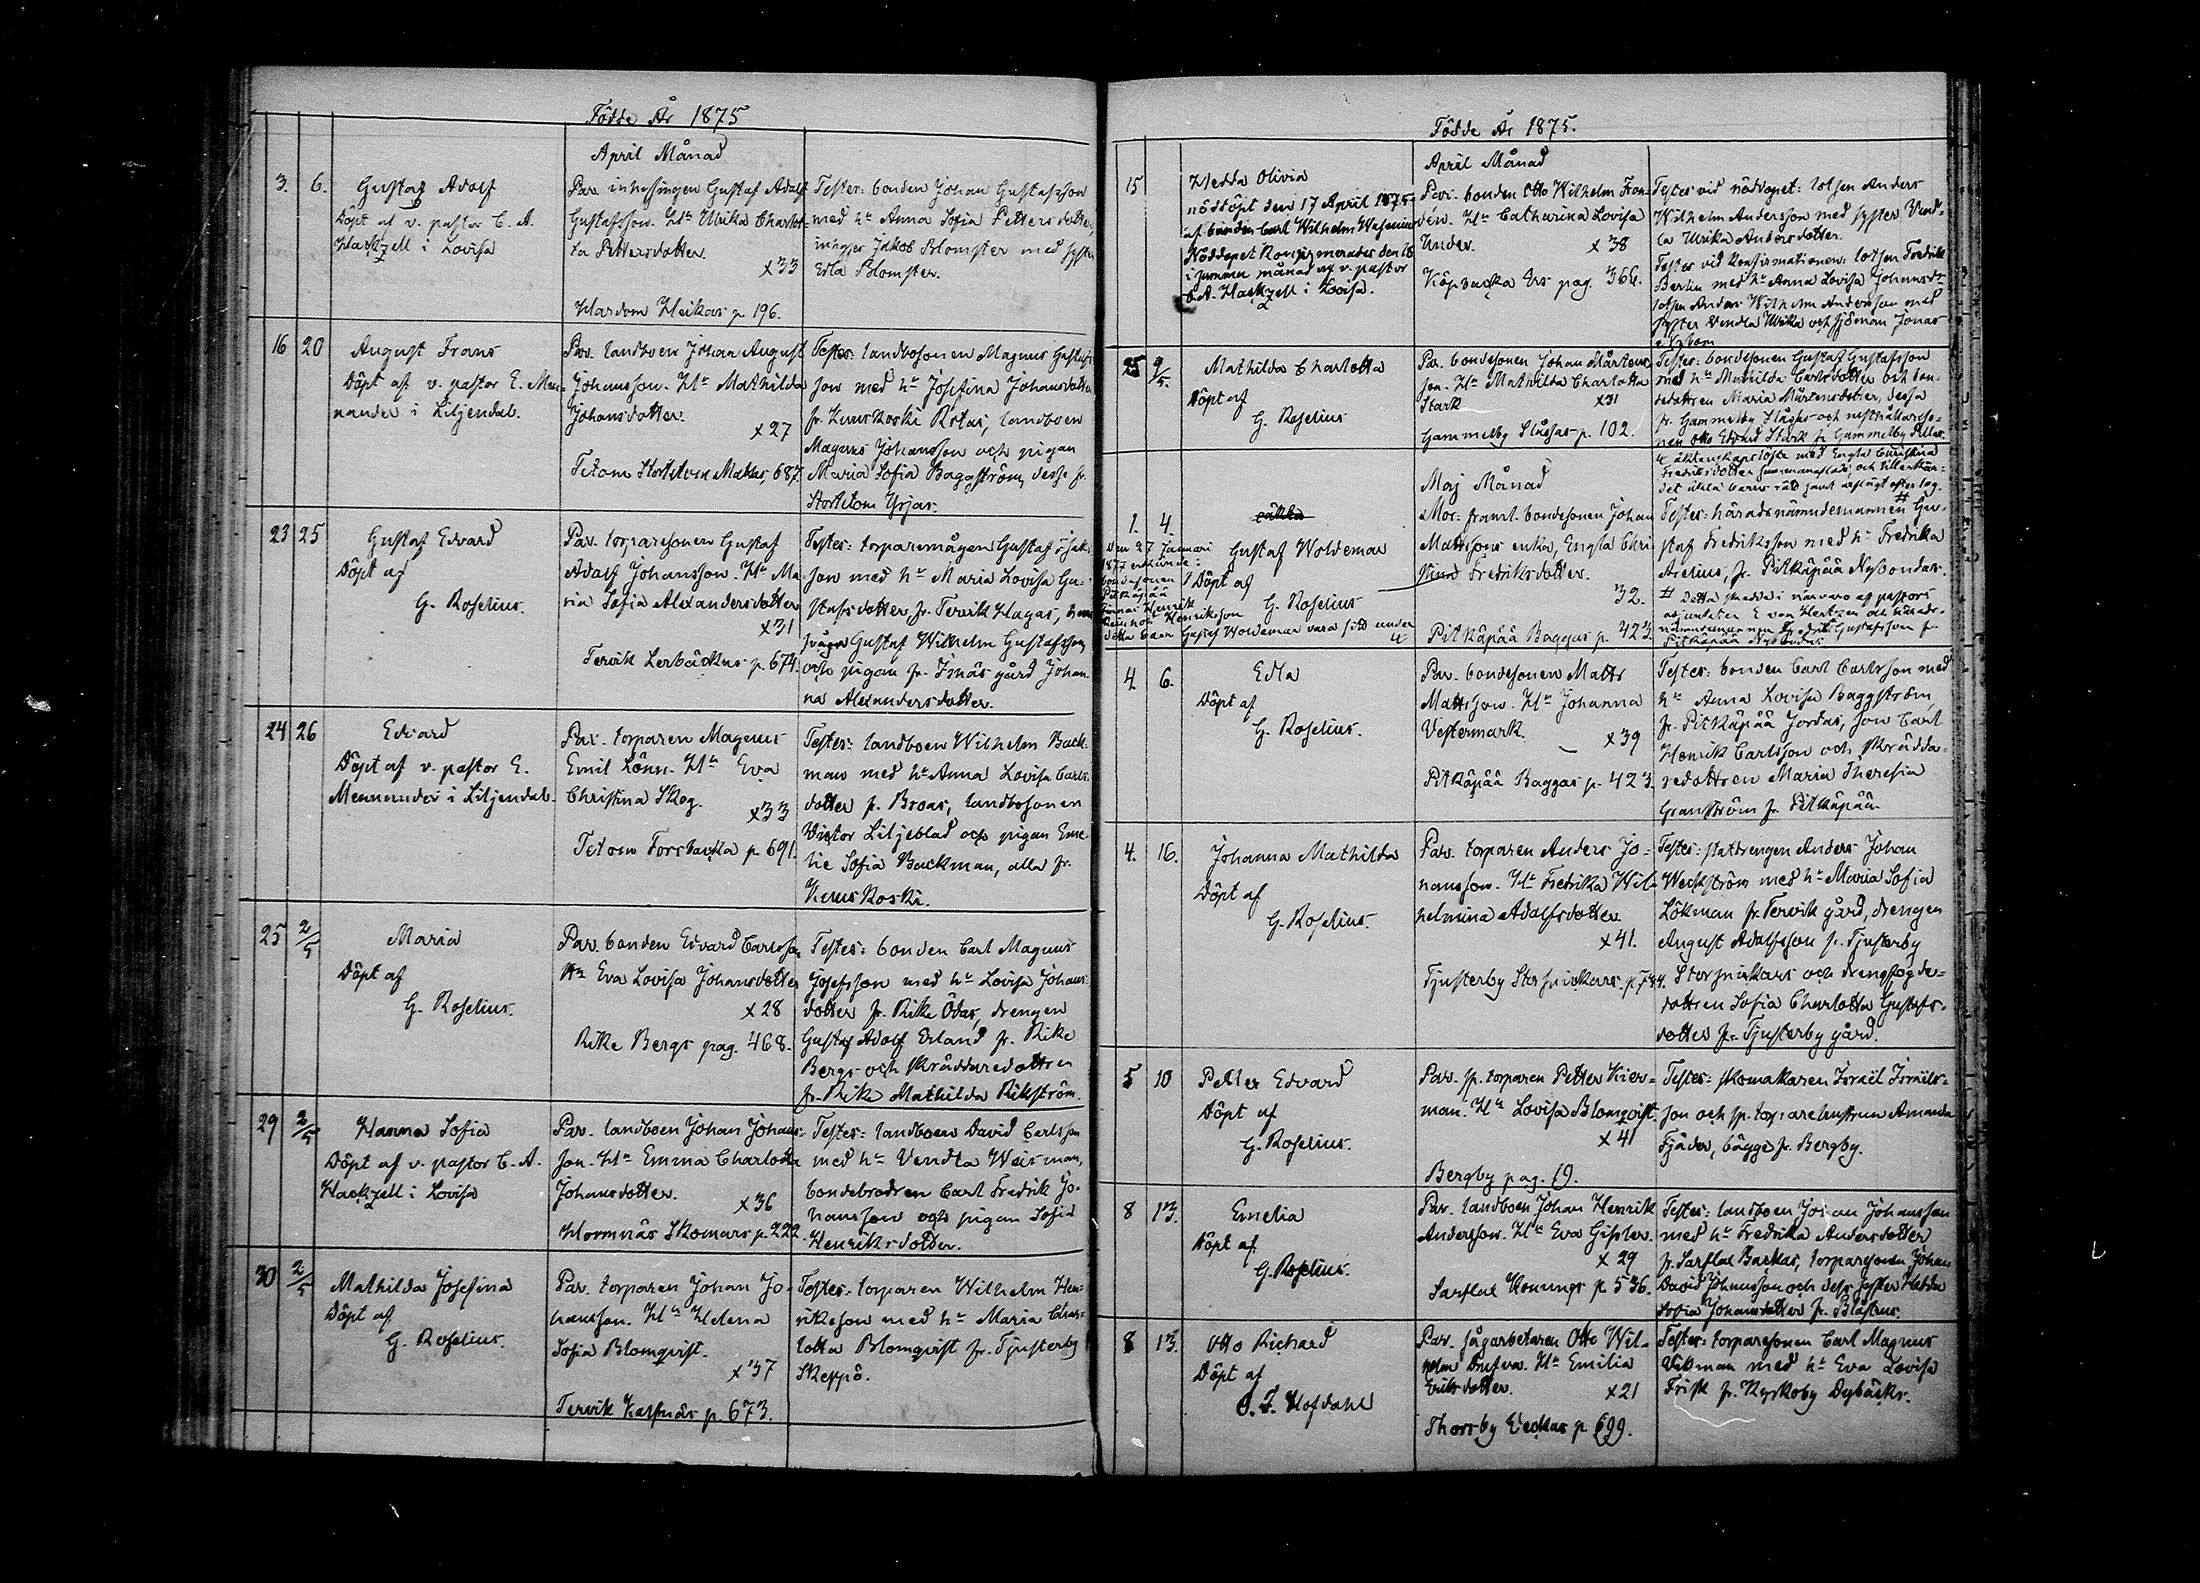 Födde År 1875
April Månad
3. 6. Gustaf Adolf
Döpt af v. pastor C. A.
Hackzell i Lovisa
Par. inhysingen Gustaf Adolf
Gustafsson. Hu Ulrika Charlot-
ta Pettersdotter.
x33
Hardom Heikas p 196.
Testes: bonden Johan Gustafsson
med hu Anna Sofia Pettersdotter,
inhyses Jakob Blomster med syster
Edla Blomster.
16 20 August Frans
Döpt af v. pastor E. Men-
nander i Liljendal.
Par. landboen Johan August
Johansson. Hu Mathilda
Johansdotter.
x27
Tetom Stortetom Mattas, 687.
Testes: landbosonen Magnus Gustafs-
son med hu Josefina Johansdotter
fr. Kuuskoski Rotas, landboen
Magnus Johansson och pigan
Maria Sofia Baggström, desse fr.
Stortetom Yrjas.
23 25 Gustaf Edvard
Döpt af
G. Roselius.
Par. torparesonen Gustaf
Adolf Johansson. Hu Ma-
ria Sofia Alexandersdotter
x31
Tervik Lerbäckas p. 674.
Testes: torparemågen Gustaf Isaks-
son med hu Maria Lovisa Gu-
stafsdotter, fr. Tervik Hagas,
svåger Gustaf Wilhelm Gustafsson
och pigan fr. gård Johan-
na Alexandersdotter.
24 26 Edvard
Döpt af v. pastor E.
Mennander i Liljendal.
Par. torparen Magnus
Emil Lönn. Hu Eva
Christina Skog.
x33
Tetom Forsbacka p 691.
Testes: landboen Wilhelm Back-
man med hu Anna Lovisa Carls-
dotter fr. Broas, landbosonen
Victor Liljeblad och pigan Eme-
lie Sofia Backman, alla fr.
Kuuskoski.
25 2/5 Maria
Döpt af
G. Roselius.
Par. bonden Edvard Carlsson
Hu Eva Lovisa Johansdotter
x28
Rike Bergs pag. 468.
Testes: bonden Carl Magnus
Josefsson med hu Lovisa Johans-
dotter fr. Rike Ödas, drengen
Gustaf Adolf Erland fr. Rike
Bergs och skräddaredottren
fr. Rike Mathilda Rikström.
29 2/5 Hanna Sofia
Döpt af v. pastor C. A.
Hackzell i Lovisa
Par. landboen Johan Johans-
son. Hu Emma Charlotta
Johansdotter.
x36
Hormnäs Skomars p. 222.
Testes: landboen David Carlsson
med hu Vendla Weisman,
bondebrodren Carl Fredrik Jo-
hansson och pigan Sofia
Henriksdotter.
30 2/5 Mathilda Josefina
Döpt af
G. Roselius.
Par. torparen Johan Jo-
hansson. Hu Helena
Sofia Blomqvist.
x37
Tervik Kalfnäs p. 673.
Testes: torparen Wilhelm Hen-
riksson med hu Maria Char-
lotta Blomqvist fr. Tjusterby
Skeppö.
Födde År 1875.
April Månad
15 Hedda Olivia
nöddöpt den 17 April 1875
af bonden Carl Wilhelm
Nöddopet konfirmerades den 18
i samma månad af v. pastor
C. A. Hackzell i Lovisa.
Par. bonden Otto Wilhelm Fron-
dén. Hu Catharina Lovisa
Under.
x38
Köpbacka Ers pag. 366.
Testes vid nödopet: lotsen Anders
Wilhelm Andersson med syster Vend-
la Ulrika Andersdotter.
Testes vid konfirmationen: lotsen Fredrik
Berlin med hu Anna Lovisa Johansdr
lotsen Anders Wilhelm Andersson med
syster Vendla Ulrika och sjöman Jonas
25 9/5. Mathilda Charlotta
Döpt af
G. Roselius
Par. bondesonen Johan Mårtens-
son. Hu Mathilda Charlotta
Stark
x31
Gammelby Slåssas p. 102.
Testes: bondesonen Gustaf Gustafsson
med hu Mathilda Carlsdotter och bon-
dedottren Maria Mårtensdotter, dessa
fr. Gammelby Slåssas och
Otto Edvard Stark fr. Gammelby
Maj Månad
1. 4. oäkta
Gustaf Woldemar
Döpt af
G. Roselius
Den 27 Januari
1877 erkände
bondesonen
Pitkäpää
Henrik
Henriksson
detta barn Gustaf Woldemar vara född under
Mor: framl. bondesonen Johan
Mattssons enka, Engla Chri-
stina Fredriksdotter.
32.
Pitkäpää Baggas p. 423.
äktenskapslöfte med Engla Christina
Fredriksdotter sammanaflade, och tillerkän-
det äkta barns rätt samt arfslagt efter lag.
Testes: häradsnämndemannen Gu-
staf Fredriksson med hu Fredrika
Arelius, fr. Pitkäpää Nybondas.
# Detta skedde i närvaro af pastors
adjunkten E von Hertzen och härads-
nämndemannen Gustafsson fr.
Pitkäpää Nybondas.
4. 6. Edla
Döpt af
G. Roselius.
Par. bondesonen Matts
Mattsson. Hu Johanna
Vestermark.
x39
Pitkäpää Baggas p. 423.
Testes: bonden Carl Carlsson med
hu Anna Lovisa Baggström,
fr. Pitkäpää Jordas, son Carl
Henrik Carlsson och skrädda-
redottren Maria Theresia
Granström fr. Pitkäpää.
4. 16. Johanna Mathilda
Döpt af
G. Roselius.
Par. torparen Anders Jo-
hansson. Hu Fredrika Wil-
helmina Adolfsdotter.
x41.
Tjusterby Storsnickars p. 744.
Testes: statdrengen Anders Johan
Weckström med hu Maria Sofia
Lökman fr. Tervik gård, drengen
August Adolfsson fr. Tjusterby
Storsnickars och drengfogde-
dottren Sofia Charlotta Gustafs-
dotter fr. Tjusterby gård.
5 10 Petter Edvard
Döpt af
G. Roselius.
Par. sp. torparen Petter Kier-
man. Hu Lovisa Blomqvist.
x41
Bergby pag. 19.
Testes: skomakaren Israil Israils-
son och sp. torparehustrun Amanda
Fjäder, bägge fr. Bergby.
8 13. Emelia
Döpt af
G. Roselius.
Par. landboen Johan Henrik
Andersson. Hu Eva Gisler.
x29
Sarflax Konungs p. 536.
Testes: landboen Johan Johansson
med hu Fredrika Andersdotter
fr. Sarflax Backas, torparesonen Johan
David Johansson och dess syster Hedda
Sofia Johansdotter fr. Blåsbus.
8 13. Otto Richard
Döpt af
O. F. Hofdahl
Par. sågarbetaren Otto Wil-
helm Dufva. Hu Emilia
Eriksdotter.
x21
Thorsby Veckas p 699.
Testes: torparesonen Carl Magnus
Vikman med hu Eva Lovisa
Frisk fr. Kyrkoby Dybäcks.